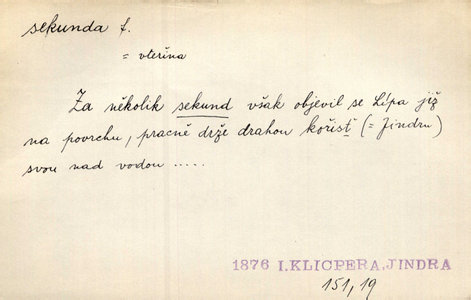 sekunda f.
= vteřina
Za několik sekund však objevil se Lípa již
na povrchu, pracně drže drahou kořist (= Jindru)
svou nad vodou .....
1876 I.KLICPERA,JINDRA
151,19